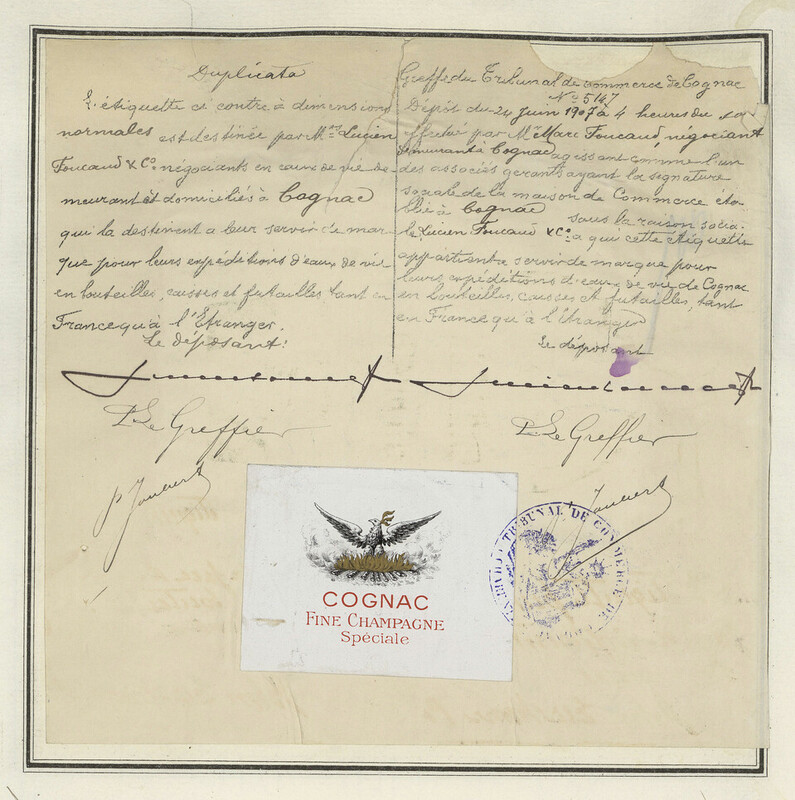 Duplicata
L'étiquette ci contre à dimensions
normales est destinée par Mrs Lucien
Foucaud & Co. négociants en eaux de vie de-
meurant et domiciliés à Cognac
qui la destinent a leur servir de mar-
que pour leurs expéditions d'eaux de vie
en bouteilles, caisses et futailles tant en
France qu'à l'Etranger.
Le déposant:
P. Le Greffier
Greffe du Tribunal de Commerce de Cognac
No 5147
Dépôt du 24 Juin 1907 à 4 heures du soir
effectué par Mr Marc Foucaud, négociant
demeurant à Cognac agissant comme l'un
des associés gérants ayant la signature
sociale de la maison de Commerce éta-
blie à Cognac sous la raison socia-
le Lucien Foucaud & Co. a qui cette étiquette
appartient servir de marque pour
leurs expéditions d'eaux de vie de Cognac
en bouteilles, caisses et futailles, tant
en France qu'à l'étranger
Le déposant
P. Le Greffier
COGNAC
FINE CHAMPAGNE
Spéciale
TRIBUNAL DE COMMERCE DE